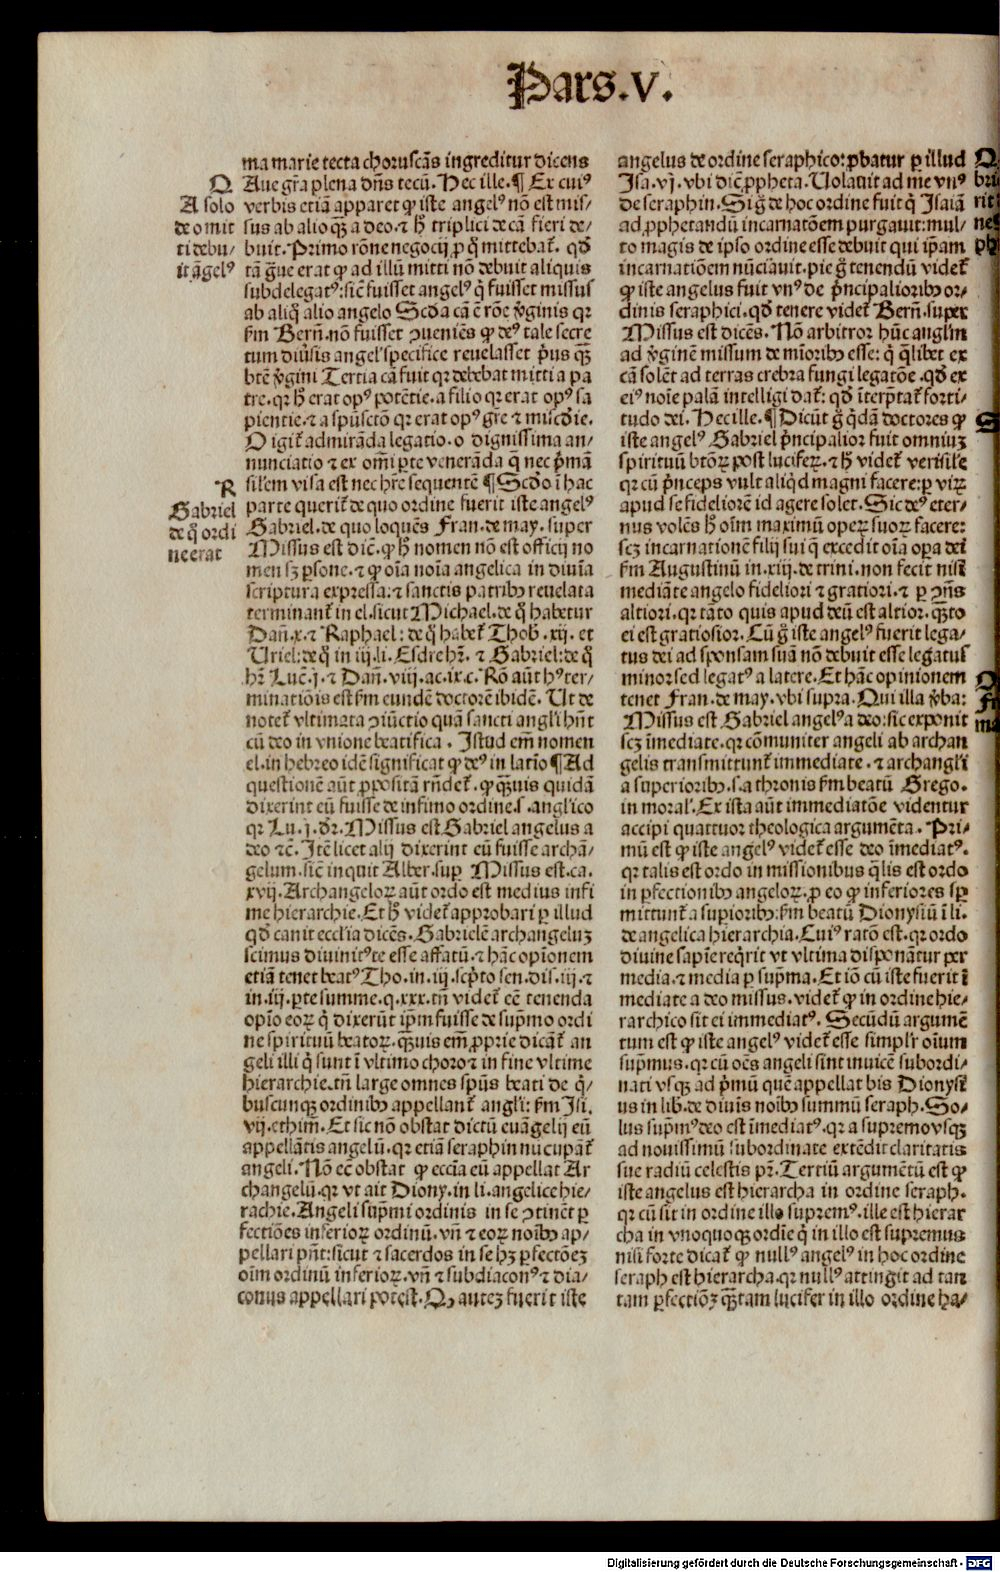 Pars.V.
ma marie tecta choruscãs ingreditur dicens
Aue gr̃a plena dñs tecũ. Hec ille. ¶ Ex cuiꝰ
verbis etiã apparet ꝙ iste angelꝰ nõ est mis⸗
sus ab alio qꝫ̃ a deo. ⁊ h̾ triplici de cã fieri de⸗
buit. Primo rõne negocij ꝓ q̃ mittebat̃. qð
tã gͣue erat ꝙ ad illũ mitti nõ debuit aliquis
subdelegatꝰ: sic̃ fuisset angelꝰ q̃ fuisset missus
ab aliq̃ alio angelo Scďa cã ẽ rõe ꝟginis qr
ẜm Berñ. nõ fuisset ꝯueniẽs ꝙ deꝰ tale secre
tum diu̾sis angel' specifice reuelasset p̃us qꝫ̃
btẽ ꝟgini Tertia cã fuit qr debebat mitti a pa
tre. qr h̾ erat opꝰ potẽtie. a filio qr erat opꝰ sa
pientie. ⁊ a spũsctõ qr erat opꝰ gr̃e ⁊ mĩsc̃die.
O igit̃ admirãda legatio. o dignissima an⸗
nunciatio ⁊ ex om̃i ꝑte venerãda q̃ nec p̃mã
sil'em visa est nec hr̃e sequentẽ ¶ Scďo ĩ hac
parte querit̃ de quo ordine fuerit iste angelꝰ
Gabriel. de quo loquẽs Fran. de may. super
Missus est dic̃. ꝙ h̾ nomen nõ est officij no
men sꝫ ꝑsone. ⁊ ꝙ oĩa noĩa angelica in diuĩa
scriptura expressa: ⁊ sanctis patribꝰ reuelata
terminant̃ in el. sicut Michael. de q̃ habetur
Dañ. x. ⁊ Raphael: de q̃ habet̃ Thob̃. xij. et
Uriel: de q̃ in iij. li. Esdre hr̃. ⁊ Gabriel: de q̃
hr̃ Luc̃. j. ⁊ Dañ. viij. ac. ix. c. Rõ aũt hꝰ ter⸗
minatiõis est ẜm eundẽ doctorẽ ibidẽ. Ut de
notet̃ vltimata ꝯiũctio quã sancti angl'i hñt
cũ deo in vnione beatifica. Istud em̃ nomen
el. in hebreo idẽ significat ꝙ deꝰ in latĩo ¶ Ad
questionẽ aũt ꝓpositã rñdet̃. ꝙ qꝫuis quidã
dixerint eũ fuisse de infimo ordine. s. angl'ico
qr Lu. j. dr̃. Missus est Gabriel angelus a
deo ⁊c̃. Itẽ licet alij dixerint eũ fuisse archã⸗
gelum. sic̃ inquit Alber. suꝑ Missus est. ca.
xvij. Archangeloꝝ aũt ordo est medius infi
me hierarchie. Et h̾ videt̃ approbari ꝑ illud
qð canit eccl'ia dicẽs. Gabrielẽ archangelũ
scimus diuinitꝰ te esse affatũ. ⁊ hãc opionem
etiã tenet beatꝰ Tho. in. iij. scp̃to sen. dis. iij. ⁊
in. iij. ꝑte summe. q. xxx. tñ videt̃ cẽ tenenda
opĩo eoꝝ q̃ dixerũt ip̃m fuisse de sup̃mo ordi
ne spirituũ beatoꝝ. qꝫuis em̃ ꝓprie dicãt̃ an
geli illi q̃ sunt ĩ vltimo choro ⁊ in fine vltime
hierarchie. tñ large omnes spũs beati de q̃⸗
buscunqꝫ ordinibꝰ appellant̃ angl'i: ẜm Isi.
vij. ethim̃. Et sic nõ obstat dictũ euãgelij eũ
appellãtis angelũ. qr etiã seraphin nũcupãt̃
angeli. Nõ ec̃ obstat ꝙ ecc̃ia eũ appellat Ar
changelũ. qr vt ait Diony. in li. angelice hie⸗
rachie. Angeli sup̃mi ordinis in se ꝯtinẽt ꝑ
fectiões inferioꝝ ordinũ. vñ ⁊ eoꝝ noĩbꝰ ap⸗
pellari pñt: sicut ⁊ sacerdos in se hꝫ ꝑfectõeꝫ
oĩm ordinũ inferioꝝ. vñ ⁊ subdiaconꝰ ⁊ dia⸗
conus appellari potest. Qꝙ auteꝫ fuerit iste
Q.
A solo
deo mit
ti debu⸗
it ãgelꝰ
R
Gabriel
de q̃ ordi
ne erat
angelus de ordine seraphico: ꝓbatur ꝑ illud
Isa. vj. vbi dic̃ ꝓpheta. Uolauit ad me vnꝰ
de seraphin. Si g̃ de hoc ordine fuit q̃ Isaiã
ad ꝓphetandũ incarnatõem purgauit: mul⸗
to magis de ipso ordine esse debuit qui ip̃am
incarnatiõem nũciauit. pie g̃ tenendũ videt̃
ꝙ iste angelus fuit vnꝰ de p̃ncipalioribꝰ or⸗
dinis seraphici. qð tenere videt̃ Berñ. super
Missus est dicẽs. Nõ arbitror hũc angl'm
ad ꝟginẽ missum de mĩoribꝰ esse: q̃ q̃libet ex
cã solẽt ad terras crebra fungi legatõe. qð ex
eiꝰ noĩe palã intelligi dat̃: qð ĩterp̃tat̃ forti⸗
tudo dei. Hec ille. ¶ Dicũt g̃ q̃dã doctores ꝙ
iste angelꝰ Gabriel p̃ncipalior fuit omniuꝫ
spirituũ btõꝝ post luciferꝝ. ⁊ h̾ videt̃ verisil'e
qr cũ p̃nceps vult aliqd magni facere: ꝑ viꝝ
apud se fideliorẽ id agere solet. Sic deꝰ eter⸗
nus volẽs h̾ oĩm maximũ operꝝ suoꝝ facere:
scꝫ incarnationẽ filij sui q̃ excedit oĩa oꝑa dei
ẜm Augustinũ in. xiij. de trini. non fecit nisi
mediãte angelo fideliori ⁊ gratiori. ⁊ ꝑ ꝯñs
altiori. qr tãto quis apud deũ est altior. qꝫ̃to
ei est gratiosior. Cũ g̃ iste angelꝰ fuerit lega⸗
tus dei ad sponsam suã nõ debuit esse legatus
minor sed legatꝰ a latere. Et hãc opinionem
tenet Fran. de may. vbi supra. Qui illa ꝟba:
Missus est Gabriel angelꝰ a deo: sic exponit
scꝫ ĩmediate. qr cõmuniter angeli ab archan
gelis transmittunt̃ immediate. ⁊ archangl'i
a superioribꝰ. s. a thronis ẜm beatũ Grego.
in moral'. Ex ista aũt immediatõe videntur
accipi quattuor theologica argumẽta. Pri⸗
mũ est ꝙ iste angelꝰ videt̃ esse deo ĩmediatꝰ.
qr talis est ordo in missionibus q̃lis est ordo
in ꝑfectionibꝰ angeloꝝ. ꝓ eo ꝙ inferiores sꝑ
mittunt̃ a suꝑioribꝰ: ẜm beatũ Dionysiũ ĩ li.
de angelica hierarchia. Cuiꝰ ratõ est. qr ordo
diuine sapĩe reqrit vt vltima disponãtur per
media. ⁊ media ꝑ sup̃ma. Et iõ cũ iste fuerit ĩ
mediate a deo missus. videt̃ ꝙ in ordine hie⸗
rarchico sit ei immediatꝰ. Secũdũ argumẽ
tum est ꝙ iste angelꝰ videt̃ esse simpl'r oĩum
sup̃mus. qr cũ oẽs angeli sint inuicẽ subordi⸗
nati vsqꝫ ad p̃mũ quẽ appellat bis Dionysĩ
us in lib. de diuĩs noĩbꝰ summũ seraph. So⸗
lus sup̃mꝰ deo est ĩmediatꝰ. qr a supremo vsqꝫ
ad nouissimũ subordinate extẽdit claritatis
sue radiũ celestis pr̃. Tertiũ argumẽtũ est ꝙ
iste angelus est hierarcha in ordine seraph.
qr cũ sit in ordine illo supremꝰ. ille est hierar
cha in vnoquoqꝫ ordĩe q̃ in illo est supremus
nisi forte dicat̃ ꝙ nullꝰ angelꝰ in hoc ordine
seraph est hierarcha. qr nullꝰ attingit ad tan
tam ꝑfectiõꝫ qꝫ̃tam lucifer in illo ordine ha⸗
Digitalisierung gefördert durch die Deutsche Forschungsgemeinschaft - DFG